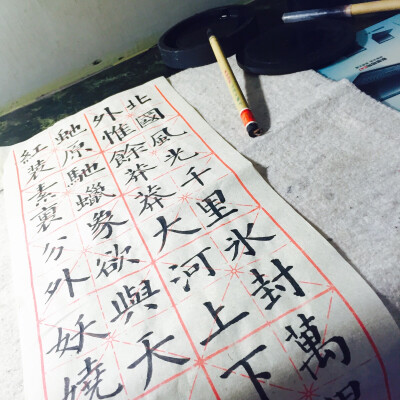 北國風光千里冰封萬里
外惟餘莽莽大河上下
虵原馳蠟象欲與天
紅裝素裏分外妖嬈